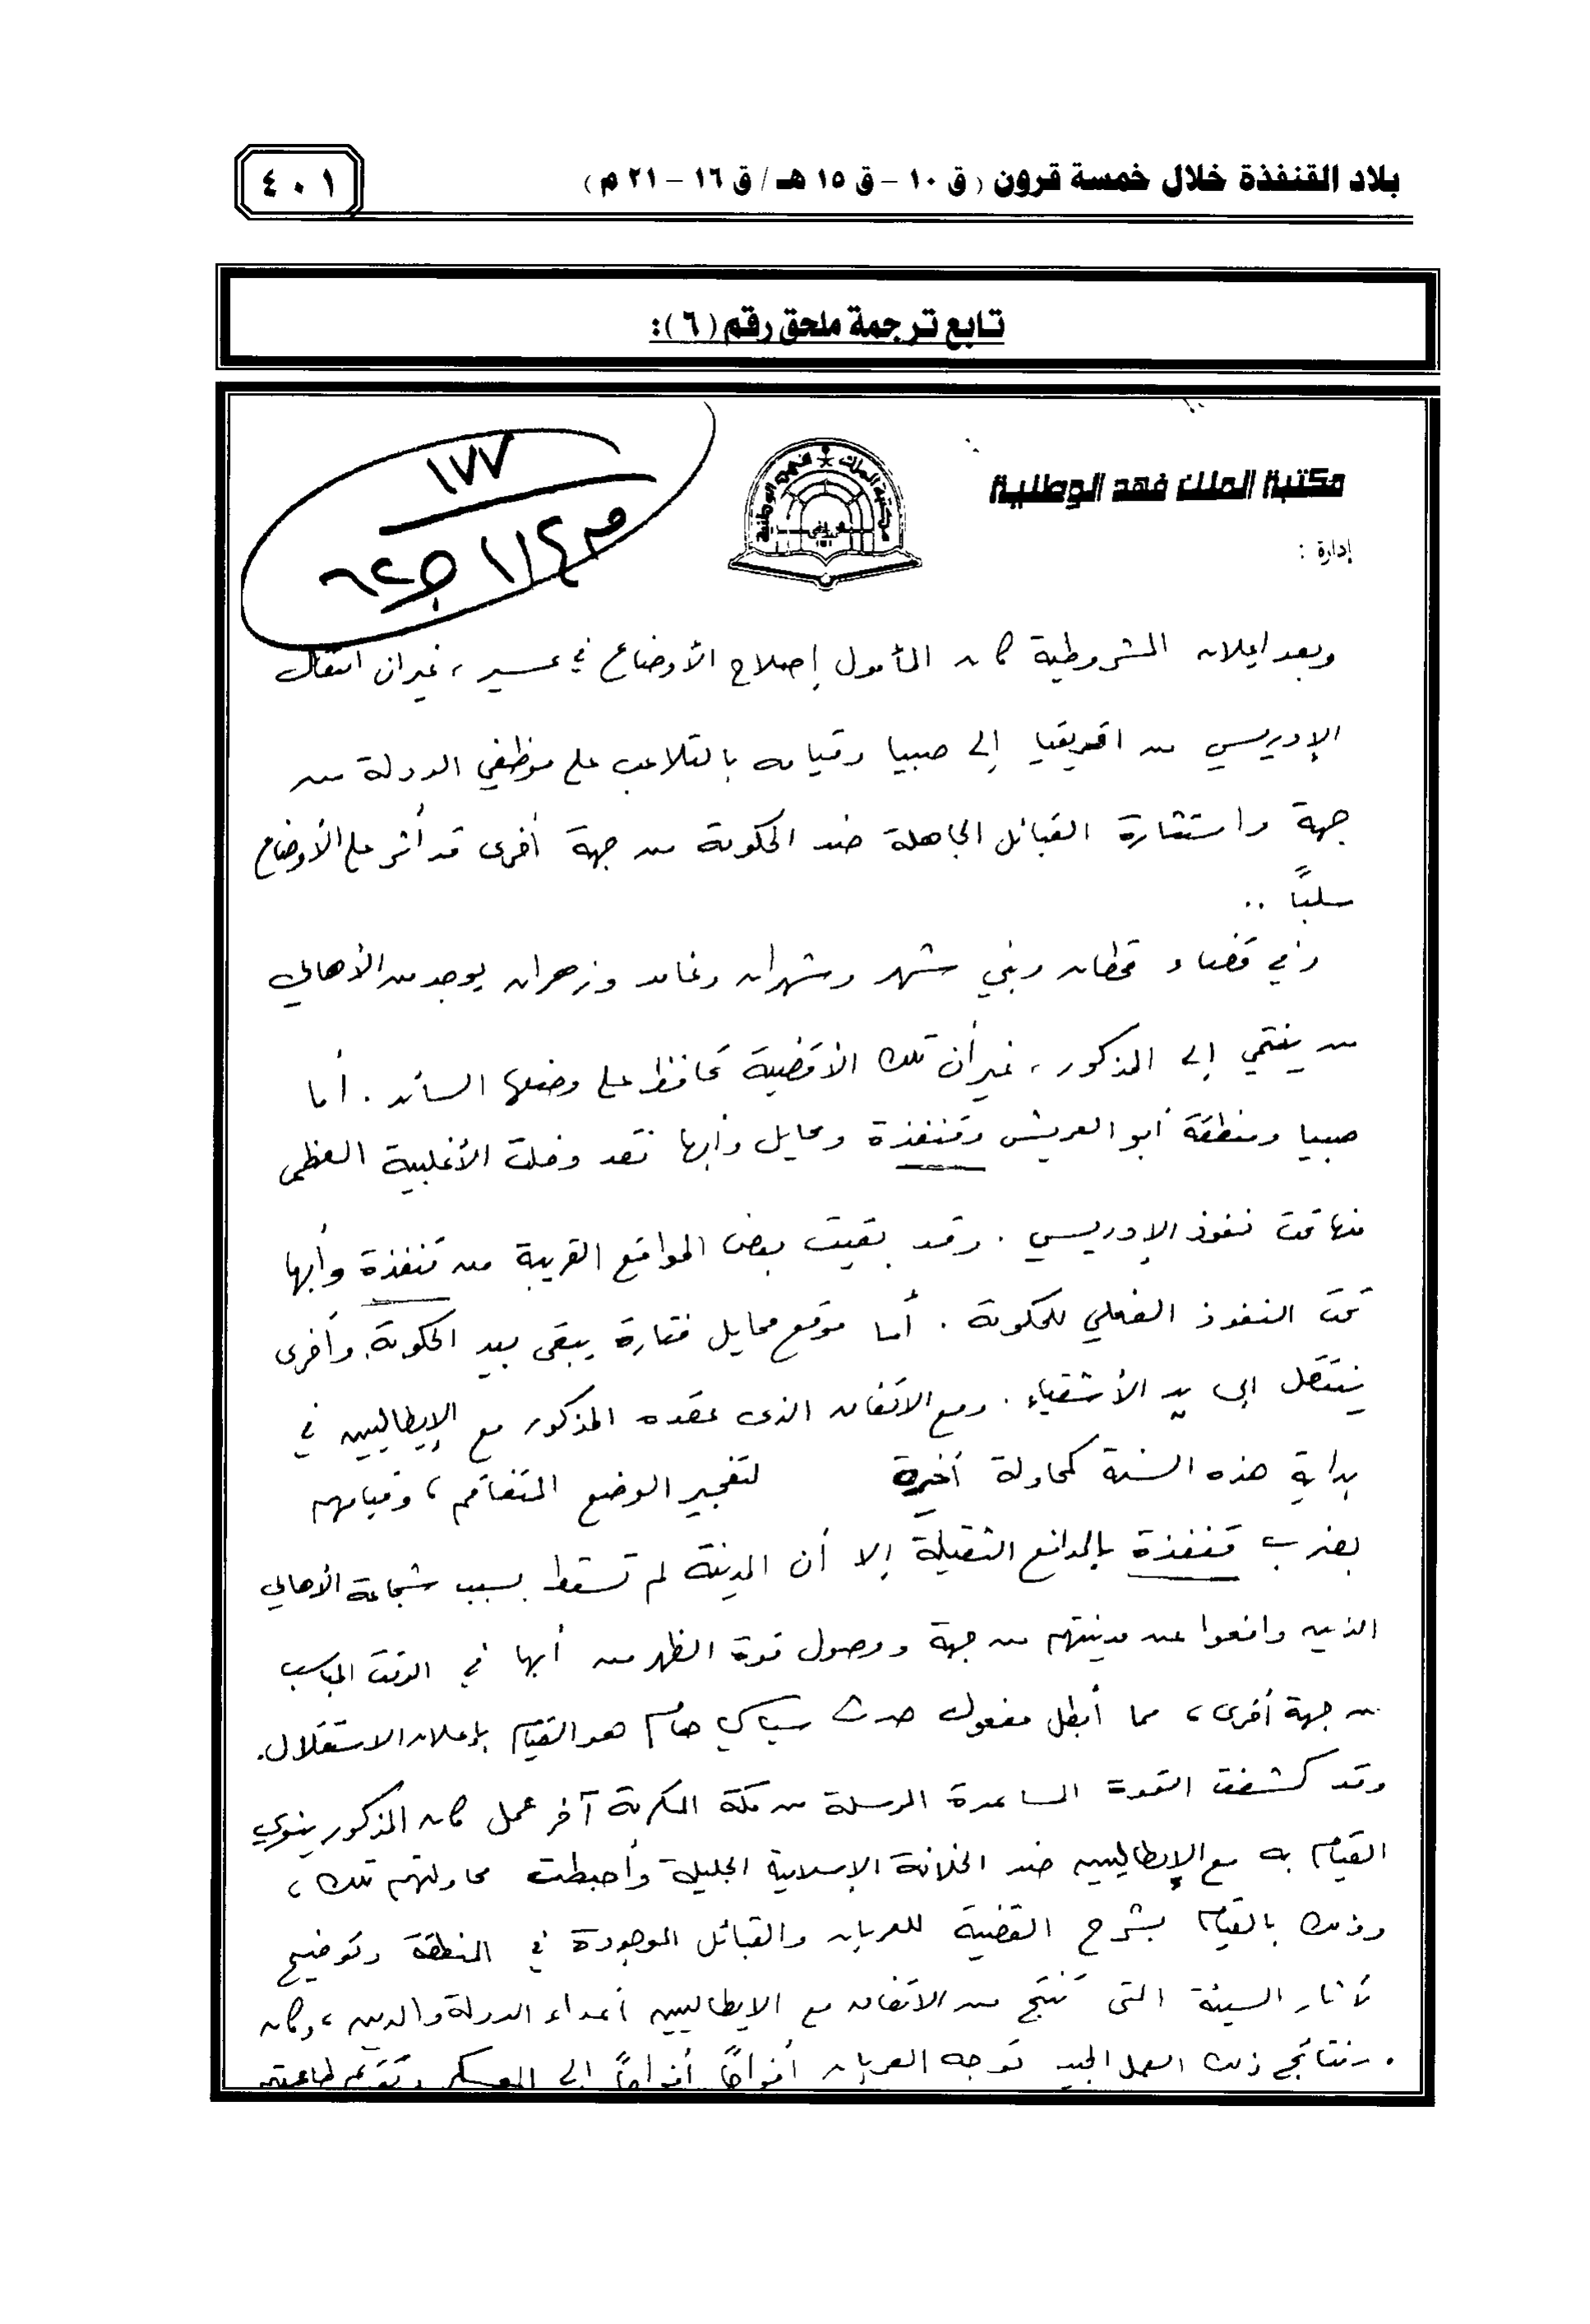 بلاد القنفذة خلال خمسة قرون (ق ١٠ - ق ١٥ هـ / ق ١٦ - ٢١ م)
٤٠١
تابع ترجمة ملحق رقم (٦):
مكتبة الملك فهد الوطنية
١٧٧
إدارة :
وبعد إعلان المشروطية كان المأمول إصلاح الأوضاع في عسير ، غير ان انتقال
الإدريسي من افريقيا إلى صبيا وقيامه بالتلاعب على موظفي الدولة من
جهة واستثارة القبائل الجاهلة ضد الحكومة من جهة أخرى قد أثر على الأوضاع
سلباً ..
وفي قضاء قحطان وبني شهر وشهران وغامد وزهران يوجد من الأهالي
من ينتمي إلى المذكور ، غير أن تلك الأقضية تحافظ على وضعها السائد . أما
صبيا ومنطقة أبو العريش وقنفذة ومحايل وأبها فقد دخلت الأغلبية العظمى
منها تحت نفوذ الإدريسي . وقد بقيت بعض المواقع القريبة من قنفذة وأبها
تحت النفوذ الفعلي للحكومة . أما موقع محايل فتارة يبقى بيد الحكومة وأخرى
ينتقل إلى يد الأشقياء . ومع الاتفاق الذي عقده المذكور مع الإيطاليين في
بداية هذه السنة كمحاولة أخيرة لتفجير الوضع المتفاقم ، وقيامهم
بضرب قنفذة بالمدافع الثقيلة إلا أن المدينة لم تسقط بسبب شجاعة الأهالي
الذين دافعوا عن مدينتهم من جهة ووصول قوة الظهر من أبها في الوقت المناسب
من جهة أخرى ، مما أبطل مفعول حدث سياسي هام هو القيام بإعلان الاستقلال .
وقد كشفت القوة المساعدة المرسلة من مكة المكرمة آخر عمل كان المذكور ينوي
القيام به مع الإيطاليين ضد الخلافة الإسلامية الجليلة وأحبطت محاولتهم تلك ،
وذلك بالقيام بشرح القضية للعربان والقبائل الموجودة في المنطقة وتوضيح
آثار السيئة التي تنتج من الاتفاق مع الايطاليين أعداء الدولة والدين ، وكان
من نتائج ذلك العمل الجيد توجه العربان أفواجاً أفواجاً إلى المعسكر وتقديم طاعتهم